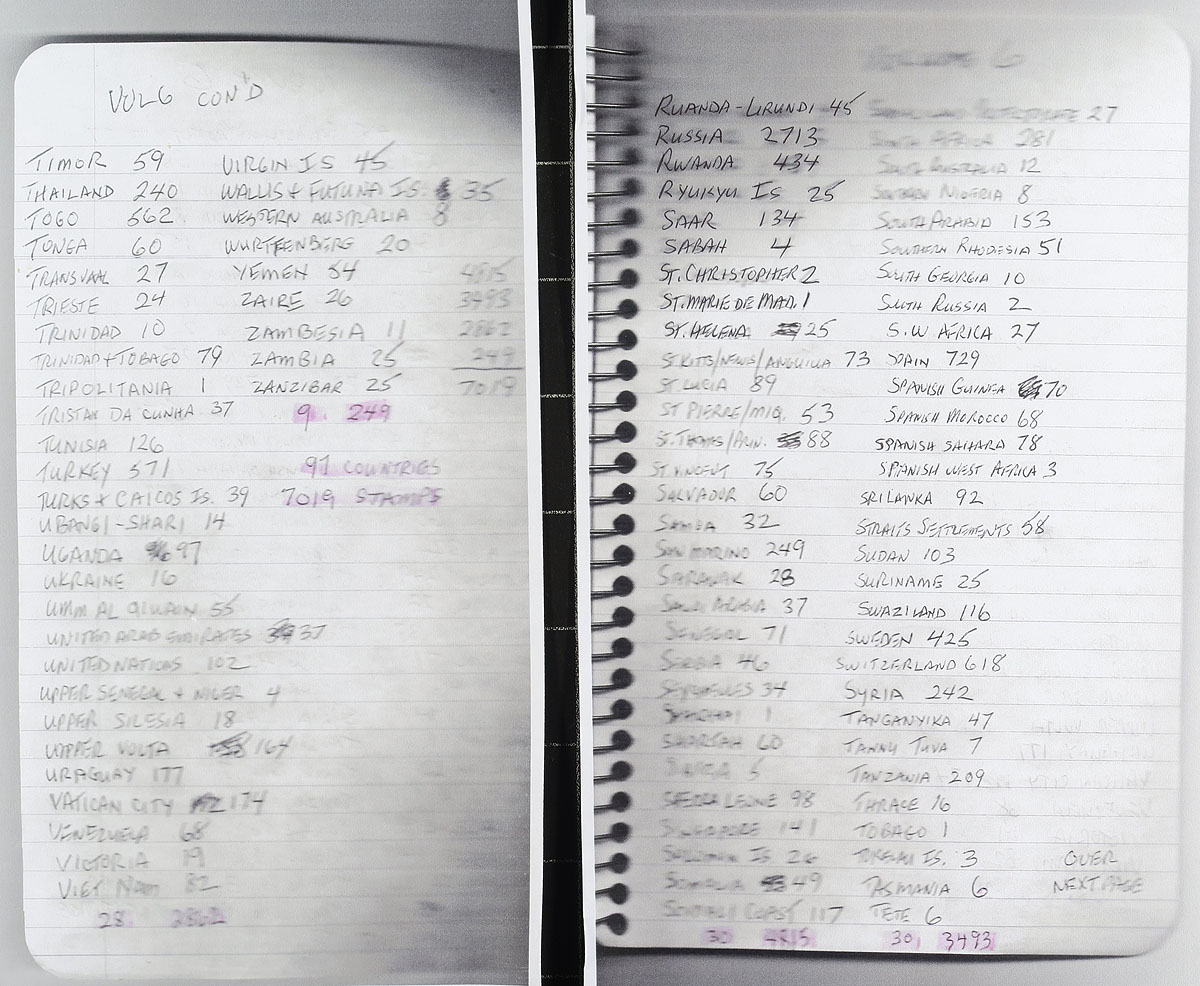 VOL 6 CON'D
TIMOR 59
THAILAND 240
TOGO 562
TONGA 60
TRANSVAAL 27
TRIESTE 24
TRINIDAD 10
TRINIDAD + TOBAGO 79
TRIPOLITANIA 1
TRISTAN DA CUNHA 37
TUNISIA 126
TURKEY 571
TURKS + CAICOS IS. 39
UBANGI-SHARI 14
UGANDA 97
UKRAINE 16
UMM AL QIWAIN 55
UNITED ARAB EMIRATES 37
UNITED NATIONS 102
UPPER SENEGAL + NIGER 4
UPPER SILESIA 18
UPPER VOLTA 164
URAGUAY 177
VATICAN CITY 174
VENEZUELA 68
VICTORIA 19
VIET NAM 82
28 2862
VIRGIN IS 45
WALLIS + FUTUNA IS. 35
WESTERN AUSTRALIA 8
WURTTENBERG 20
YEMEN 54
ZAIRE 26
ZAMBESIA 11
ZAMBIA 25
ZANZIBAR 25
9. 249
97 COUNTRIES
7019 STAMPS
3493
2862
249
7019
VOLUME 6
RUANDA-URUNDI 45
RUSSIA 2713
RWANDA 434
RYUKYU IS 25
SAAR 134
SABAH 4
ST. CHRISTOPHER 2
ST. MARIE DE MAD. 1
ST. HELENA 25
ST. KITTS/NEVIS/ANGUILLA 73
ST. LUCIA 89
ST PIERRE/MIQ. 53
88
ST. VINCENT 75
SALVADOR 60
SAMOA 32
SAN MARINO 249
SARAWAK 28
SAUDI ARABIA 37
SENEGAL 71
SERBIA 46
SEYCHELLES 34
1
SHARJAH 60
5
SIERRA LEONE 98
SINGAPORE 141
SOLOMON IS 26
SOMALIA 49
SOMALI COAST 117
30
SOMALILAND PROTECTORATE 27
SOUTH AFRICA 281
SOUTH AUSTRALIA 12
SOUTHERN NIGERIA 8
SOUTH ARABIA 153
SOUTHERN RHODESIA 51
SOUTH GEORGIA 10
SOUTH RUSSIA 2
S.W. AFRICA 27
SPAIN 729
SPANISH GUINEA 70
SPANISH MOROCCO 68
SPANISH SAHARA 78
SPANISH WEST AFRICA 3
SRI LANKA 92
STRAITS SETTLEMENTS 58
SUDAN 103
SURINAME 25
SWAZILAND 116
SWEDEN 425
SWITZERLAND 618
SYRIA 242
TANGANYIKA 47
TANNU TUVA 7
TANZANIA 209
THRACE 16
TOBAGO 1
TOKELAU IS. 3
TASMANIA 6
TETE 6
30, 3493
OVER
NEXT PAGE